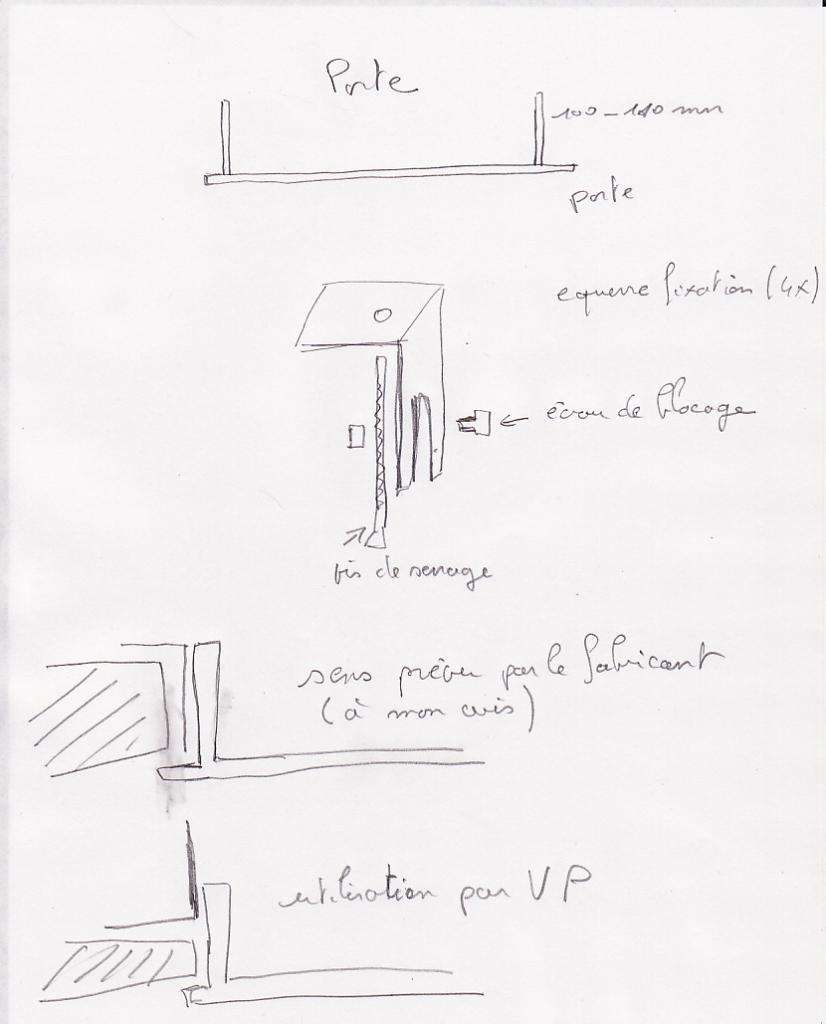 Porte
100-110 mm
porte
equerre fixation (4x)
écrou de blocage
vis de serrage
sens prévu par le fabricant
(à mon avis)
utilisation par VP